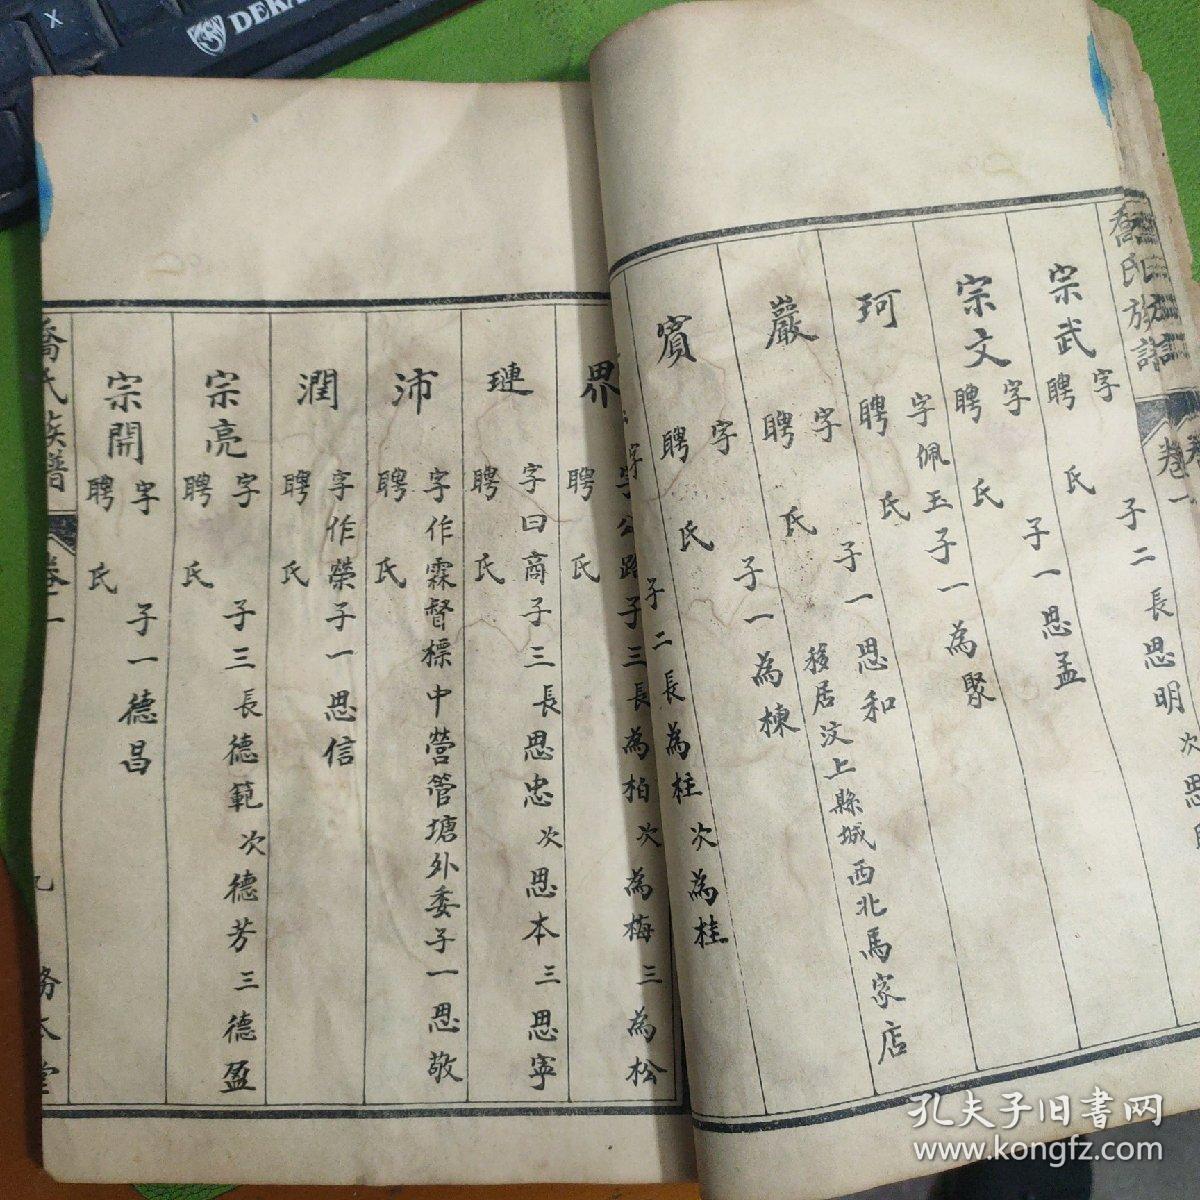 喬氏族譜
卷一
子二長思明次思
宗武 字 聘 氏 子一思孟
宗文 字 聘 氏 子一為聚
珂 字佩玉 聘 氏 子一思和 移居汶上縣城西北馬家店
巖 字 聘 氏 子一為棟
賓 字 聘 氏 子二長為柱次為桂
界 字公路 聘 氏 子三長為柏次為梅三為松
璉 字曰商 聘 氏 子三長思忠次思本三思寧
沛 字作霖 聘 氏 督標中營管塘外委子一思敬
潤 字作榮 聘 氏 子一思信
宗亮 字 聘 氏 子三長德範次德芳三德盈
宗開 字 聘 氏 子一德昌
喬氏族譜
卷一
九
務本堂
DEKA
X
孔夫子旧書网
www.kongfz.com